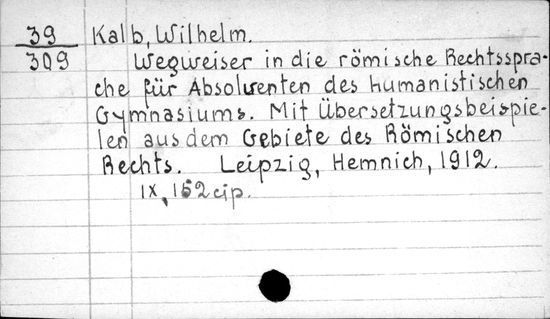 39 Kalb, Wilhelm.
309 Wegweiser in die römische Rechtsspra-
che für Absolventen des humanistischen
Gymnasiums. Mit Übersetzungsbeispie-
len aus dem Gebiete des Römischen
Rechts. Leipzig, Hemnich, 1912.
IX, 152 cip.